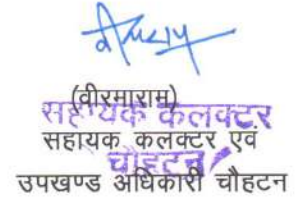 (वीरमाराम)
सहायक कलक्टर
सहायक कलक्टर एवं
चौहटन
उपखण्ड अधिकारी चौहटन